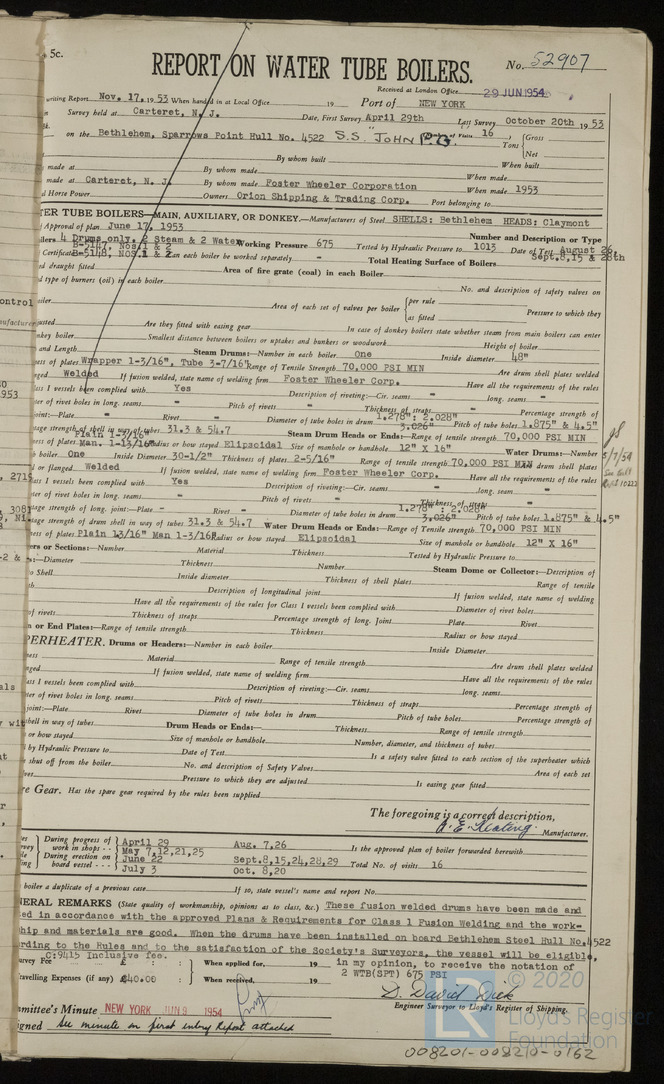 5c.
REPORT ON WATER TUBE BOILERS.
No. 52907
Received at London Office 29 JUN 1954
writing Report Nov. 17, 1953 When handed in at Local Office 19 Port of NEW YORK
Survey held at Carteret, N. J. Date, First Survey April 29th Last Survey October 20th 1953
on the Bethlehem, Sparrows Point Hull No. 4522 S.S. "JOHN P.G." Number of Visits 16 Tons Gross Net
By whom built When built
made at By whom made When made
made at Carteret, N. J. By whom made Foster Wheeler Corporation When made 1953
Horse Power Owners Orion Shipping & Trading Corp. Port belonging to
TER TUBE BOILERS—MAIN, AUXILIARY, OR DONKEY.—Manufacturers of Steel SHELLS: Bethlehem HEADS: Claymont
Approval of plan June 17, 1953 Number and Description or Type
4 Drums only, 2 Steam & 2 Water Working Pressure 675 Tested by Hydraulic Pressure to 1013 Date of Test August 26,
B-5147, Nos.1 & 2 Sept.8,15 & 28th
Certificate B-5148, NOS.1 & 2 Can each boiler be worked separately - Total Heating Surface of Boilers
draught fitted Area of fire grate (coal) in each Boiler
type of burners (oil) in each boiler No. and description of safety valves on
Area of each set of valves per boiler per rule as fitted Pressure to which they
Are they fitted with easing gear In case of donkey boilers state whether steam from main boilers can enter
boiler Smallest distance between boilers or uptakes and bunkers or woodwork Height of boiler
and Length Steam Drums:—Number in each boiler One Inside diameter 48"
of plates Wrapper 1-3/16", Tube 3-7/16" Range of Tensile Strength 70,000 PSI MIN Are drum shell plates welded
Welded If fusion welded, state name of welding firm Foster Wheeler Corp. Have all the requirements of the rules
I vessels been complied with Yes Description of riveting:—Cir. seams - long. seams -
of rivet holes in long. seams - Pitch of rivets - Thickness of straps - Percentage strength of
joint:—Plate - Rivet - Diameter of tube holes in drum 1.278" : 2.028" 3.026" Pitch of tube holes 1.875" & 4.5"
strength of shell in way of tubes 31.3 & 54.7 Steam Drum Heads or Ends:—Range of tensile strength 70,000 PSI MIN
of plates Plain 1-3/16" Man. 1-13/16" Radius or how stayed Ellipsoidal Size of manhole or handhole 12" X 16" Water Drums:—Number
boiler One Inside Diameter 30-1/2" Thickness of plates 2-5/16" Range of tensile strength 70,000 PSI MIN drum shell plates
or flanged Welded If fusion welded, state name of welding firm Foster Wheeler Corp. Have all the requirements of the rules
I vessels been complied with Yes Description of riveting:—Cir. seams - long. seam -
of rivet holes in long. seams - Pitch of rivets - Thickness of straps
strength of long. joint:—Plate - Rivet - Diameter of tube holes in drum 1.278" : 2.028" 3.026" Pitch of tube holes 1.875" & 4.5"
strength of drum shell in way of tubes 31.3 & 54.7 Water Drum Heads or Ends:—Range of Tensile strength 70,000 PSI MIN
of plates Plain 13/16" Man 1-3/16 Radius or how stayed Ellipsoidal Size of manhole or handhole 12" X 16"
or Sections:—Number Material Thickness Tested by Hydraulic Pressure to
Diameter Thickness Number Steam Dome or Collector:—Description of
to Shell Inside diameter Thickness of shell plates Range of tensile
Description of longitudinal joint If fusion welded, state name of welding
Have all the requirements of the rules for Class 1 vessels been complied with Diameter of rivet holes
of rivets Thickness of straps Percentage strength of long. Joint Plate Rivet
or End Plates:—Range of tensile strength Thickness Radius or how stayed
PERHEATER. Drums or Headers:—Number in each boiler Inside Diameter
Material Range of tensile strength Are drum shell plates welded
If fusion welded, state name of welding firm Have all the requirements of the rules
I vessels been complied with Description of riveting:—Cir. seams long. seams
of rivet holes in long. seams Pitch of rivets Thickness of straps Percentage strength of
joint:—Plate Rivet Diameter of tube holes in drum Pitch of tube holes Percentage strength of
shell in way of tubes Drum Heads or Ends:— Thickness Range of tensile strength
or how stayed Size of manhole or handhole Number, diameter, and thickness of tubes
by Hydraulic Pressure to Date of Test Is a safety valve fitted to each section of the superheater which
shut off from the boiler No. and description of Safety Valves Area of each set
Pressure to which they are adjusted Is easing gear fitted
Gear. Has the spare gear required by the rules been supplied
The foregoing is a correct description,
A. E. Keating. Manufacturer.
During progress of work in shops April 29 Aug. 7,26
May 7,12,21,25 Is the approved plan of boiler forwarded herewith
During erection on board vessel June 22 Sept.8,15,24,28,29 Total No. of visits 16
July 3 Oct. 8,20
boiler a duplicate of a previous case If so, state vessel's name and report No.
NERAL REMARKS (State quality of workmanship, opinions as to class, &c.) These fusion welded drums have been made and
in accordance with the approved Plans & Requirements for Class 1 Fusion Welding and the work-
ship and materials are good. When the drums have been installed on board Bethlehem Steel Hull No.4522
ording to the Rules and to the satisfaction of the Society's Surveyors, the vessel will be eligible,
C:9415 Inclusive fee. in my opinion, to receive the notation of
Survey Fee £ : : When applied for, 19 2 WTB(SPT) 675 PSI
Travelling Expenses (if any) £40.00 When received, 19
D. David Dick
Engineer Surveyor to Lloyd's Register of Shipping.
mittee's Minute NEW YORK JUN 9 1954
See minute on first entry Report attached
© 2020
Lloyd's Register
Foundation
008201-008210-0162